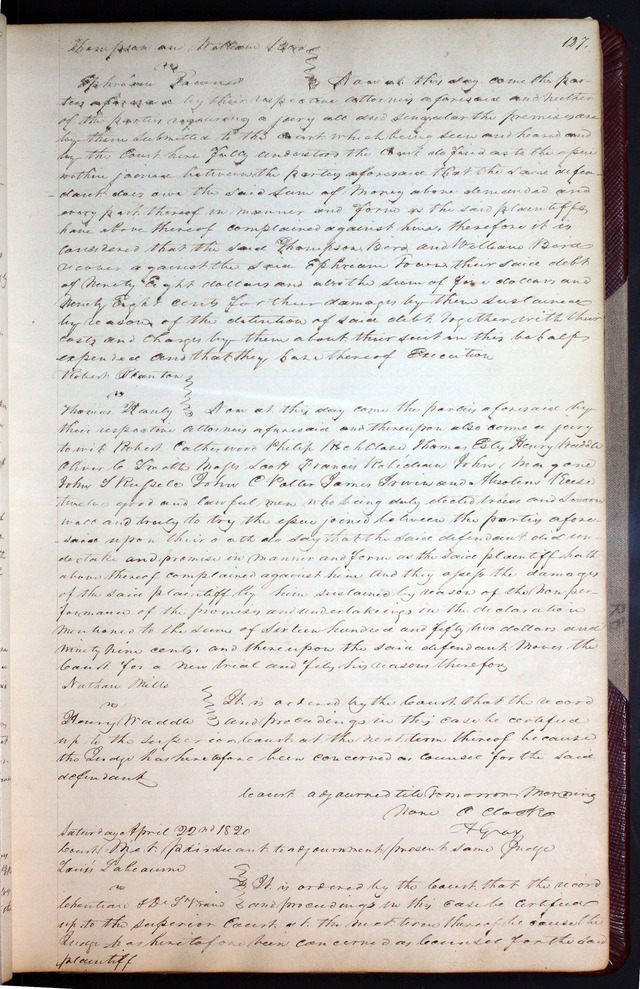 127.
Thompson and William Bird
vs
Ephraim Town
Now at this day come the par-
ties aforesaid by their respective attornies aforesaid and neither
of the parties requiring a jury all and singular the premises are
by them submitted to the Court which being seen and heard and
by the Court here fully understood the Court do find as to the issue
within joined between the parties aforesaid that the said defen-
-dant does owe the said sum of Money above demanded and
every part thereof in manner and form as the said plaintiffs
have above thereof complained against him, therefore it is
considered that the said Thompson Bird and William Bird
recover against the said Ephraim Town their said debt
of Ninety Eight dollars and also the sum of five dollars and
Ninety Eight cents for their damages by them sustained
by reason of the detention of said debt together with their
costs and charges by them about their suit in this behalf
expended and that they have thereof Execution
Robert Stanton
vs
Thomas Hanly
Now at this day come the parties aforesaid by
their respective attornies aforesaid and thereupon also come a jury
to wit Robert Catherwood Philip Thomas Estes Henry Waddle
Oliver C Smith Moses Scott Francis Robideau John Magone
John T Russele John C Potter James Irwin and Absolem Reese
twelve good and lawful men who being duly elected tried and Sworn
well and truly to try the issue joined between the parties afore-
-said upon their oath do say that the said defendant did un-
dertake and promise in manner and form as the said plaintiff hath
above thereof complained against him and they assess the damages
of the said plaintiff by him sustained by reason of the Non per-
formance of the promises and undertakeings in the declaration
mentioned to the sum of Sixteen hundred and fifty two dollars and
ninety nine cents, and thereupon the said defendant Moves the
Court for a New trial and files his reasons therefor
Nathan Mills
vs
Henry Waddle
It is ordered by the Court that the record
and proceedings in this case be certified
up to the superior Court at the next term thereof because
the Judge has heretofore been concerned as counsel for the said
defendant
Court adjourned till Tomorrow Morning
Nine O Clock
A Gray
Saturday April 22nd 1820
Court Met pursuant to adjournment present same Judge
Louis Labeaume
vs
It is ordered by the Court that the record
and proceedings in this case be certified
up to the superior Court at the next term thereof because the
Judge has heretofore been concerned as Counsel for the said
plaintiff